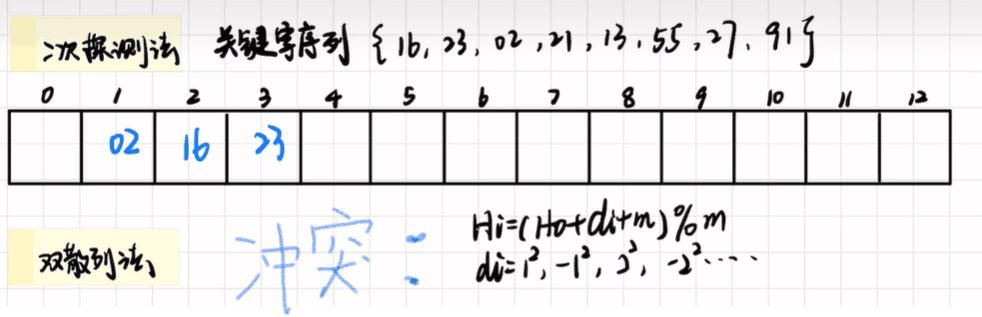 二次探测法 关键字序列 {16, 23, 02, 21, 13, 55, 27, 91}
0 1 2 3 4 5 6 7 8 9 10 11 12
02 16 23
Hi=(H0+di+m)%m
双散列法、 冲突： di=1², -1², 2², -2²····